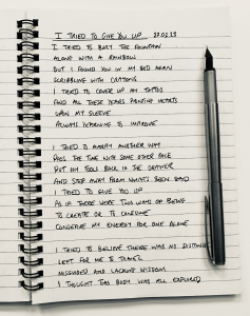 I TRIED TO GIVE YOU UP
I TRIED TO BURY THE FOUNTAIN
ALONG WITH A RAINBOW
BUT I FOUND YOU IN MY BED AGAIN
SCRIBBLING WITH CRAYONS
I TRIED TO COVER UP MY TATTOO
AND ALL THESE YEARS PAINTING HEARTS
UPON MY SLEEVE
ALWAYS YEARNING TO IMPROVE
I TRIED TO MARRY ANOTHER WAY
PASS THE TIME WITH SOME OTHER
PUT MY TOOLS BACK IN THE DRAWER
AND STEP AWAY FROM WHAT'S BEEN SAID
I TRIED TO GIVE YOU UP
AS IF THERE WERE TWO WAYS OF BEING
TO CREATE OR TO CONSUME
CONSERVE MY ENERGY FOR ONE ALONE
I TRIED TO BELIEVE THERE WAS NO DISTANCE
LEFT FOR ME TO TRAVEL
MISGUIDED AND LACKING WISDOM
I THOUGHT THIS BODY WAS ALL EXPLORED